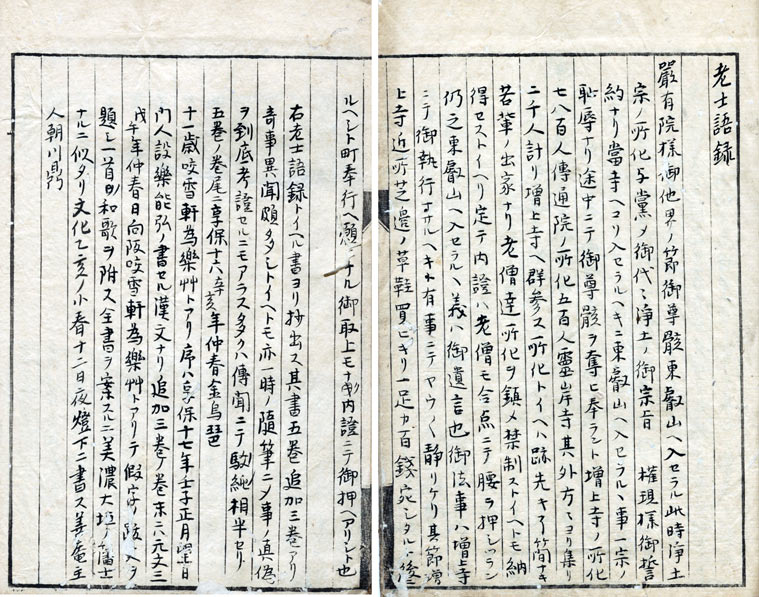 老士語録
嚴有院様御他界ノ節御尊骸東叡山ヘ入セラル此時浄土
宗ノ所化与黨メ御代ミ浄土ノ御宗旨 権現様御誓
約ナリ當寺ヘコソ入セラルヘキニ東叡山ヘ入セラルヽ事一宗ノ
恥辱ナリ途中ニテ御尊骸ヲ奪ヒ奉ラント増上寺ノ所化
七八百人傳通院ノ所化五百人靈岸寺其外方〻ヨリ集リ
二千人計リ増上寺ヘ群参ス所化トイヘハ跡先キノ了簡ナキ
若輩ノ出家ナリ老僧達所化ヲ鎮メ禁制ストイヘトモ納
得セストイヘリ定テ内證ハ老僧モ合点ニテ腰ヲ押シツラン
仍之東叡山ヘ入セラルヽ義ハ御遺言也御法事ハ増上寺
ニテ御執行ナサルヘキヤ有事ニテヤウ〱静リケリ其節増
上寺近所芝邉ノ草鞋買ヒキリ一足カ百錢宛シタルト後ニ
ルヘシト町奉行ヘ願ケル御取上モナク内證ニテ御押ヘアリシト也
右老士語録トイヘル書ヨリ抄出ス其書五巻追加三巻アリ
奇事異聞頗タタシトイヘトモ亦一時ノ随筆ニメ事ノ真偽
ヲ到底考證セルニモアラス多クハ傳聞ニテ駁純相半セリ
五巻ノ巻尾ニ享保十六辛亥年仲春金烏 琶
十一歳咬雪軒為樂艸トアリ序ハ享保十七年壬子正月望日
門人設樂能弘ノ書セル漢文ナリ追加三巻ノ巻末ニハ元文三
戊午年仲春日向阪咬雪軒為樂艸トアリテ假字ノ跋ヘヲ
題シ一首ノ和歌ヲ附ス全書ヲ案スルニ美濃大垣ノ藩士
ナルニ似タリ文化乙亥ノ小春十二日夜燈下ニ書ス善庵主
人朝川鼎